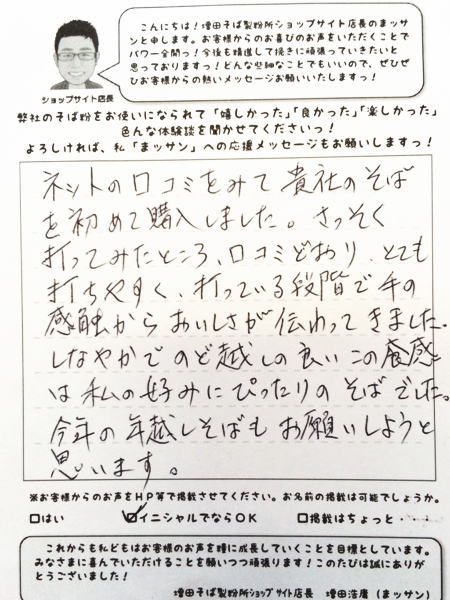 こんにちは！増田そば製粉所ショップサイト店長のまッサ
ンと申します。お客様からのお喜びのお声をいただくことで
パワー全開っ！今後も精進して挽きに頑張っていきたいと
思っておりますっ！どんな些細なことでもいいので、ぜひぜ
ひお客様からの熱いメッセージお願いいたしますっ！
ショップサイト店長
弊社のそば粉をお使いになられて「嬉しかった」「良かった」「楽しかった」
色んな体験談を聞かせてくださいっ！
よろしければ、私「まッサン」への応援メッセージもお願いしますっ！
ネットの口コミをみて貴社のそば
を初めて購入しました。さっそく
打ってみたところ、口コミどおり、とても
打ちやすく、打っている段階で手の
感触からおいしさが伝わってきました。
しなやかでのど越しの良いこの食感
は私の好みにぴったりのそばでした。
今年の年越しそばもお願いしようと
思います。
※お客様からのお声をHP等で掲載させてください。お名前の掲載は可能でしょうか。
□はい ☑イニシャルでならOK □掲載はちょっと・・・・
これからも私どもはお客様のお声を糧に成長していくことを目標としています。
みなさまに喜んでいただけることを願いつつ頑張ります！このたびは誠にありが
とうございました！
増田そば製粉所ショップサイト店長 増田浩庸（まッサン）